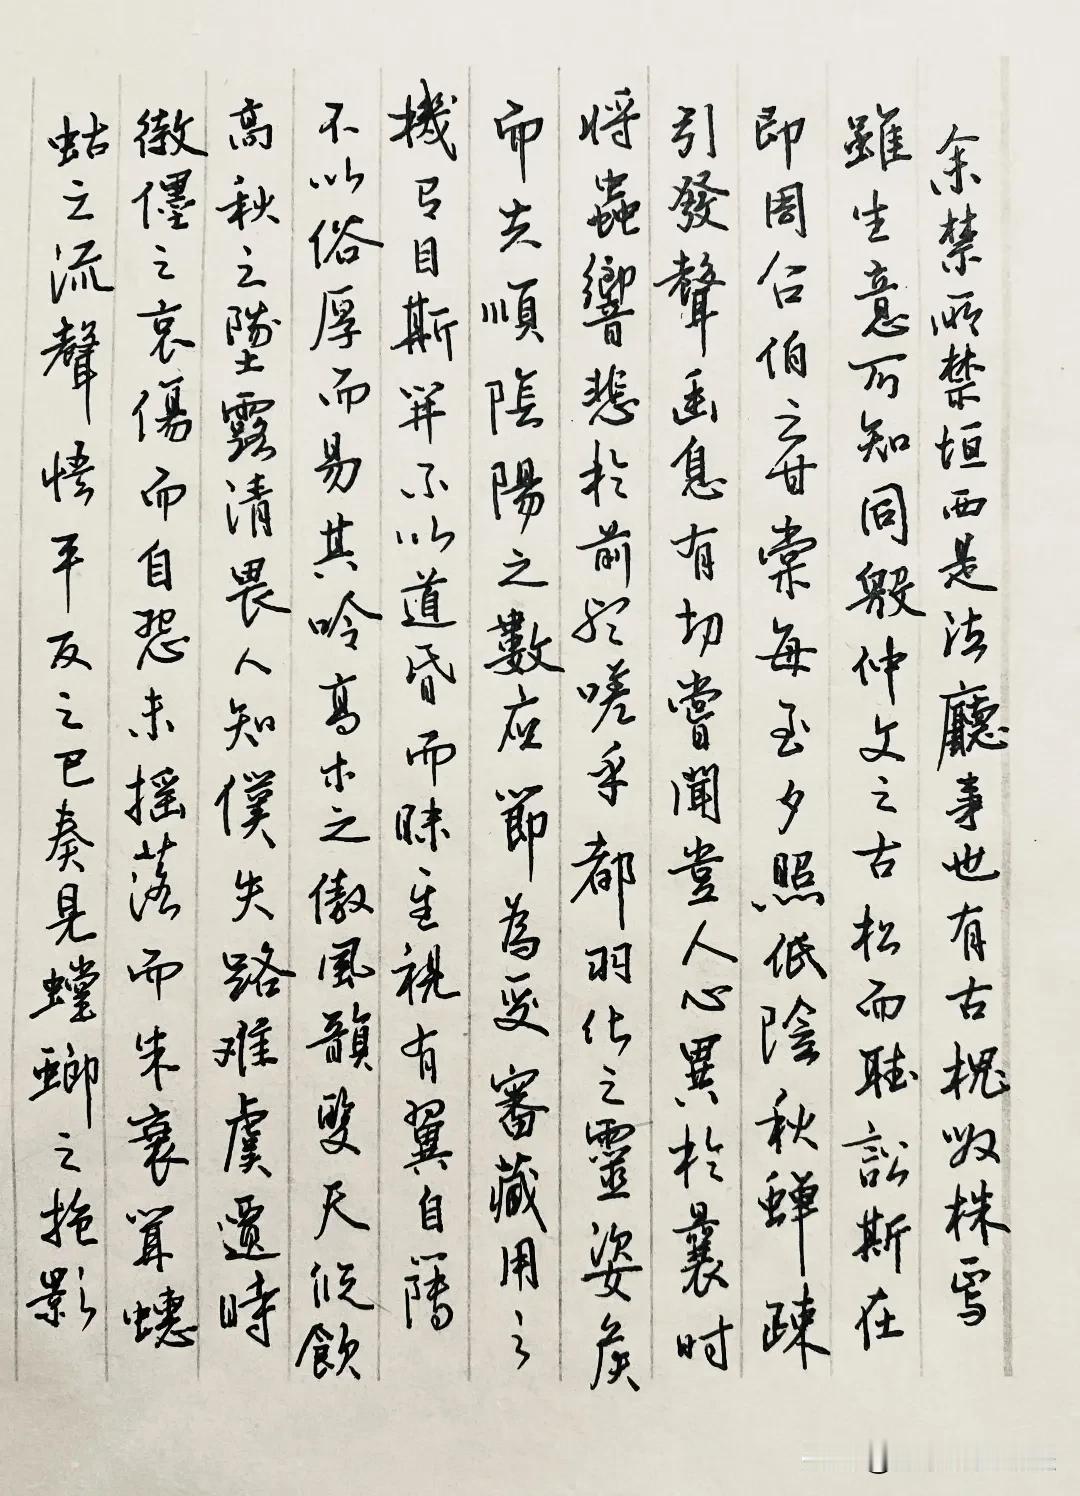 余禁所禁垣西是法廳事也有古槐数株焉
雖生意可知同殷仲文之古松而聽訟斯在
即周召伯之甘棠每至夕照低陰秋蟬疎
引發聲幽息有切嘗聞豈人心異於曩时
將蟲響悲於前聽嗟乎都羽化之靈姿
而順陰陽之數應節為變審藏用之
機有目斯開不以道昏而昧其視有翼自薄
不以俗厚而易其吟高木之微風韻姿天縱飲
高秋之墜露清畏人知僕失路难虞遭時
徽纆之哀傷而自怨未摇落而先衰聞蟪
蛄之流聲悟平反之已奏見螳螂之抱影